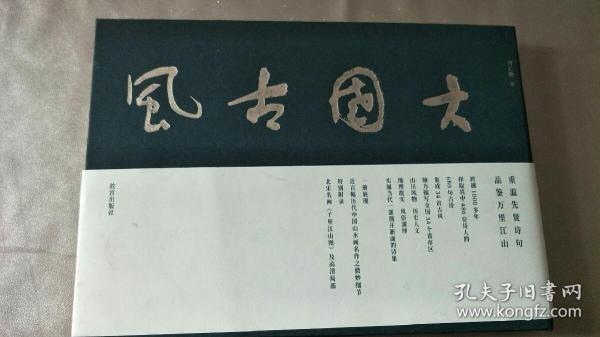 大国古风
重温先贤诗句
品鉴万里江山
跨越1000余年
择取其中486位诗人的
689句古诗
集成34首古风
倾力描写全国34个省市区
山川风物 历史人文
地理故实 风俗演绎
实属当代一部别开新面的诗集
一册展现
近百幅历代中国山水画名作之微妙细节
特别附录
北宋名画《千里江山图》及高清局部
故宫出版社
孔夫子旧书网
www.kongfz.com